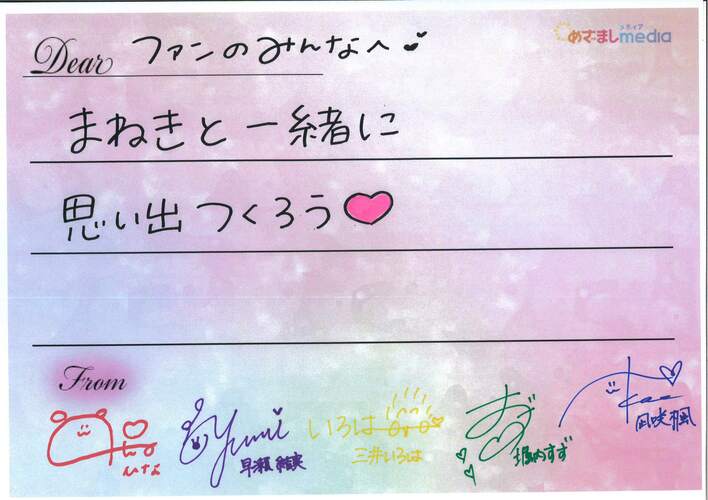 Dear ファンのみんなへ
めざましmedia
メディア
まねきと一緒に
思い出つくろう
From
Yumi
早瀬結実
いろは
三井いろは
堀内すず
凪咲楓